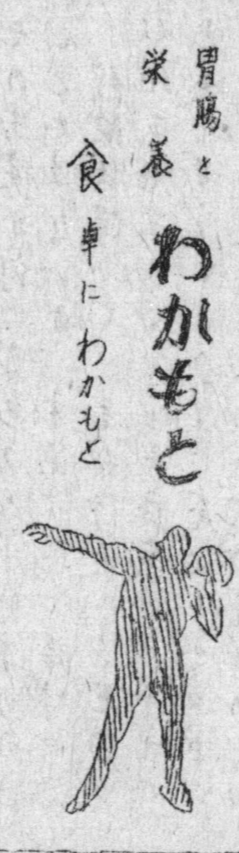 胃腸と
栄養
わかもと
食卓にわかもと